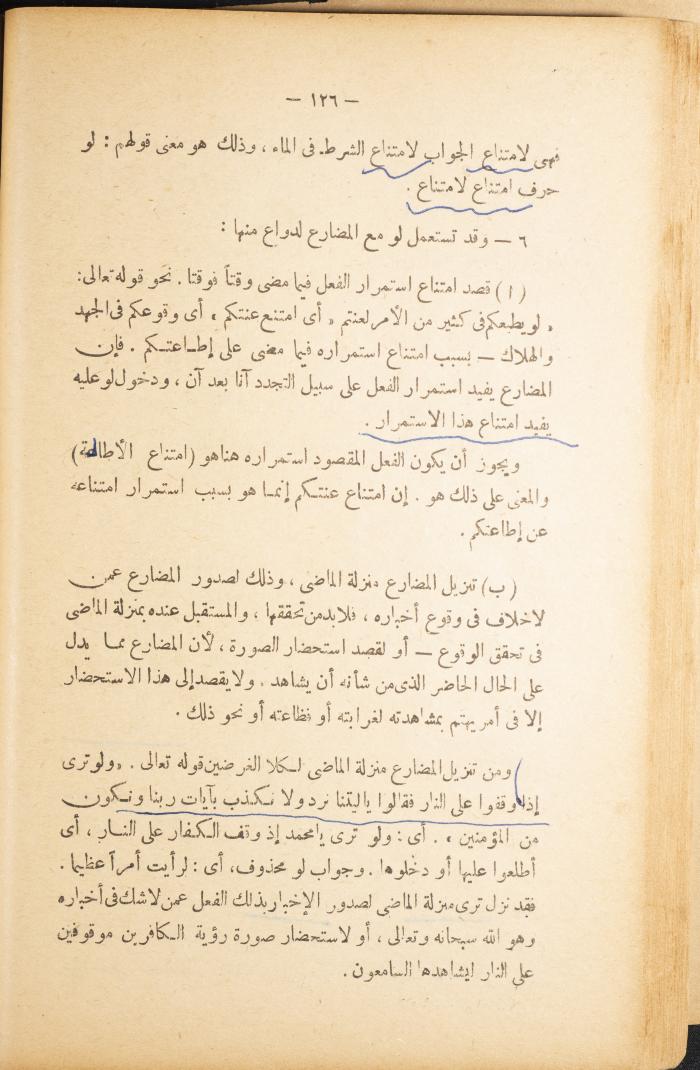 — ١٢٦ —
فهى لامتناع الجواب لامتناع الشرط فى الماء ، وذلك هو معنى قولهم : لو
حرف امتناع لامتناع .
٦ — وقد تستعمل لو مع المضارع لدواع منها :
( ا ) قصد امتناع استمرار الفعل فيما مضى وقتاً فوقتا . نحو قوله تعالى :
« لو يطيعكم فى كثير من الأمر لعنتم » أى امتنع عنتكم ، أى وقوعكم فى الجهد
والهلاك — بسبب امتناع استمراره فيما مضى على إطاعتكم . فإن
المضارع يفيد استمرار الفعل على سبيل التجدد آنا بعد آن ، ودخول لو عليه
يفيد امتناع هذا الاستمرار .
ويجوز أن يكون الفعل المقصود استمراره هنا هو (امتناع الأطالعة)
والمعنى على ذلك هو . إن امتناع عنتكم إنما هو بسبب استمرار امتناعه
عن إطاعتكم .
(ب) تنزيل المضارع منزلة الماضى ، وذلك لصدور المضارع عمن
لاخلاف فى وقوع أخباره ، فلابد من تحققها ، والمستقبل عنده بمنزلة الماضى
فى تحقق الوقوع — أو لقصد استحضار الصورة ، لأن المضارع مما يدل
على الحال الحاضر الذى من شأنه أن يشاهد . ولا يقصد إلى هذا الاستحضار
إلا فى أمر يهتم بمشاهدته لغرابته أو فظاعته أو نحو ذلك .
ومن تنزيل المضارع منزلة الماضى لكلا الغرضين قوله تعالى . « ولو ترى
إذ وقفوا على النار فقالوا ياليتنا نرد ولا نكذب بآيات ربنا ونكون
من المؤمنين » . أى : ولو ترى يا محمد إذ وقف الكفار على النار ، أى
أطلعوا عليها أو دخلوها . وجواب لو محذوف، أى : لرأيت أمراً عظيما .
فقد نزل ترى منزلة الماضى لصدور الإخبار بذلك الفعل عمن لاشك فى أخباره
وهو الله سبحانه وتعالى ، أو لاستحضار صورة رؤية الكافرين موقوفين
على النار ليشاهدها السامعون .